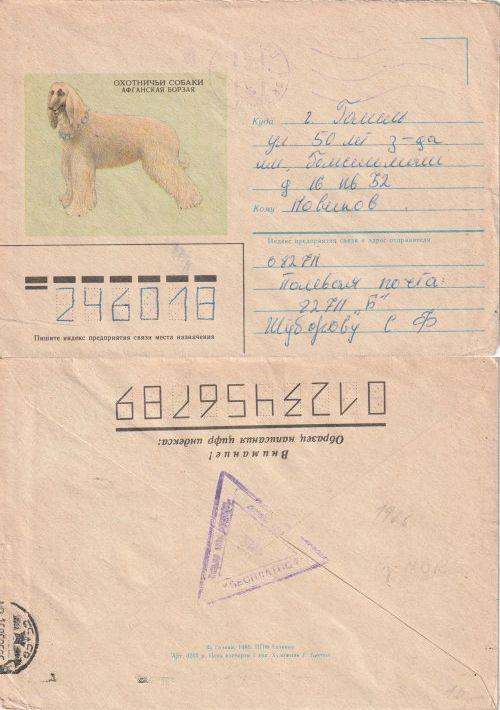 ОХОТНИЧЬИ СОБАКИ
АФГАНСКАЯ БОРЗАЯ
Куда г. Гомель
ул 50 лет з-да
им. Гомсельмаш
д 16 кв 52
Кому Новиков
Индекс предприятия связи и адрес отправителя
82711
Полевая почта
82711 "Б"
Шуборову С Ф
246018
Пишите индекс предприятия связи места назначения
0123456789
Образец написания цифр индекса:
Внимание!
БЕСПЛАТНО
© Гознак, 1985.